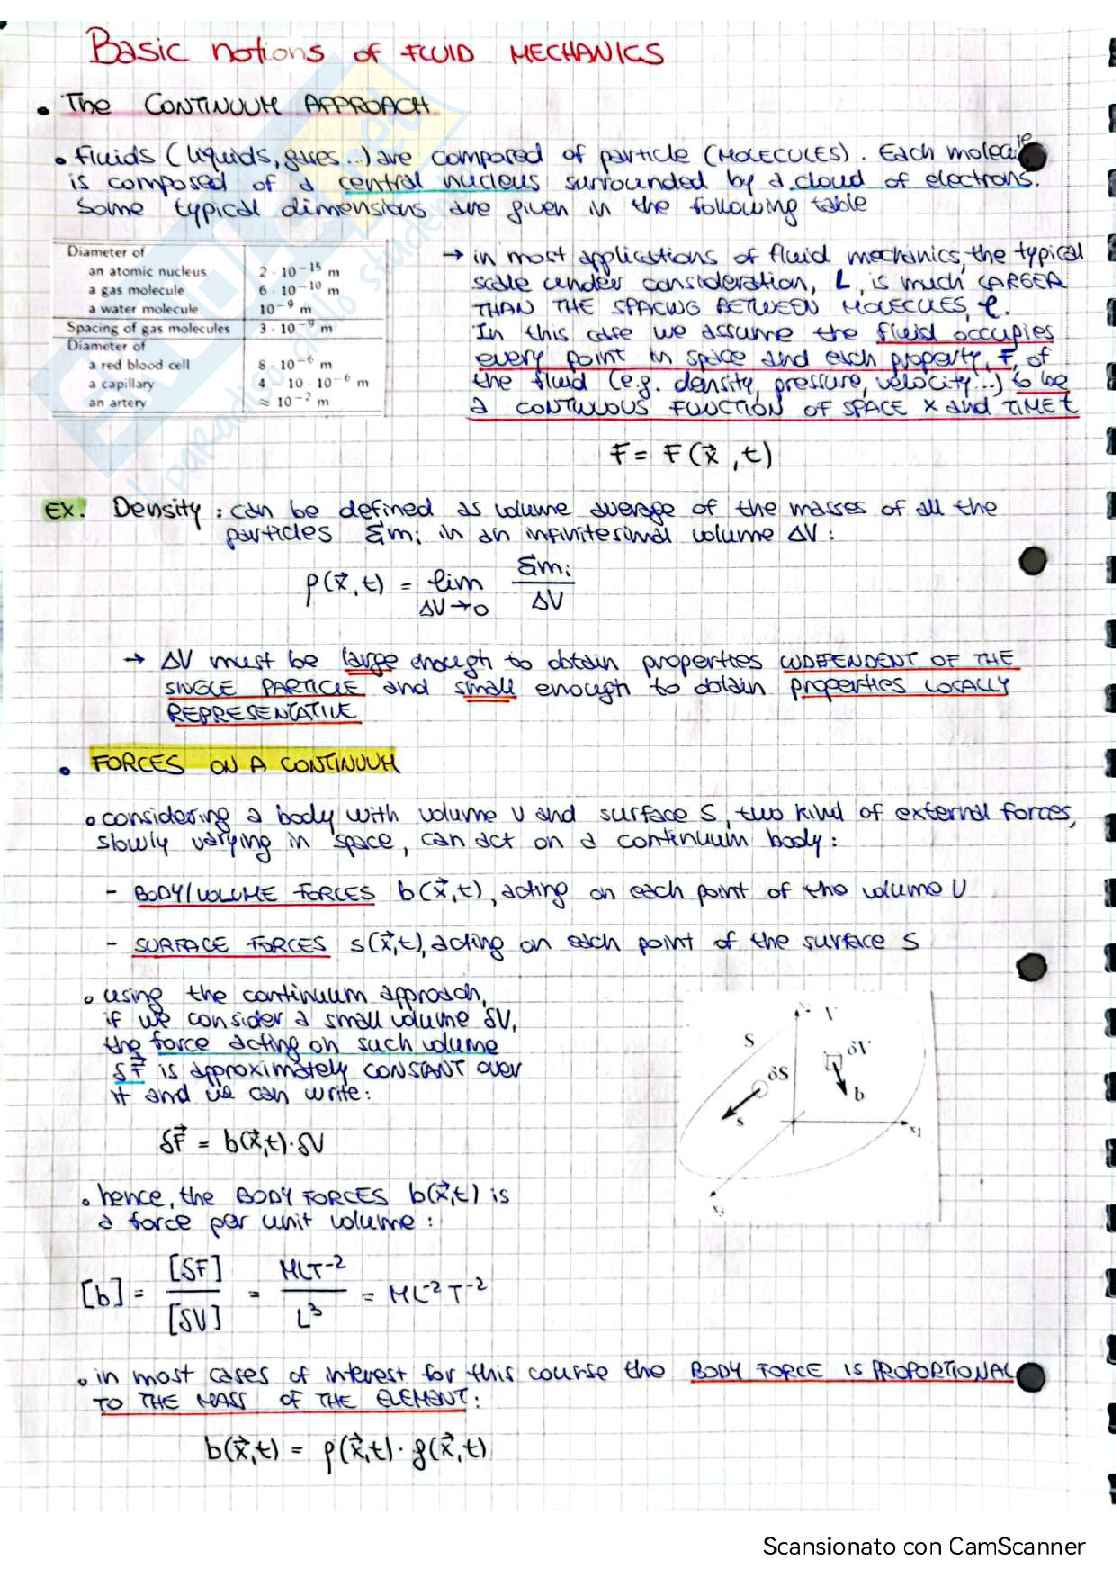 Basic notions of FLUID MECHANICS
• The CONTINUUM APPROACH
• Fluids (liquids, gases...) are composed of particle (MOLECULES). Each molecule
is composed of a central nucleus surrounded by a cloud of electrons.
Some typical dimensions are given in the following table
Diameter of
an atomic nucleus 2 · 10⁻¹⁵ m
a gas molecule 6 · 10⁻¹⁰ m
a water molecule 10⁻⁹ m
Spacing of gas molecules 3 · 10⁻⁹ m
Diameter of
a red blood cell 8 · 10⁻⁶ m
a capillary 4 10 · 10⁻⁶ m
an artery ≈ 10⁻² m
→ in most applications of fluid mechanics, the typical
scale under consideration, L, is much LARGER
THAN THE SPACING BETWEEN MOLECULES, ℓ.
In this case we assume the fluid occupies
every point in space and each property, F, of
the fluid (e.g. density, pressure, velocity...) to be
a CONTINUOUS FUNCTION OF SPACE X and TIME t
F = F(x⃗, t)
EX. Density: can be defined as volume average of the masses of all the
particles Σmᵢ in an infinitesimal volume ΔV:
ρ(x⃗, t) = lim ΔV→0 Σmᵢ / ΔV
→ ΔV must be large enough to obtain properties INDEPENDENT OF THE
SINGLE PARTICLE and small enough to obtain properties LOCALLY
REPRESENTATIVE
• FORCES ON A CONTINUUM
• considering a body with volume V and surface S, two kind of external forces,
slowly varying in space, can act on a continuum body:
- BODY/VOLUME FORCES b(x⃗,t), acting on each point of the volume V
- SURFACE FORCES s(x⃗,t), acting on each point of the surface S
• using the continuum approach,
if we consider a small volume δV,
the force acting on such volume
δF⃗ is approximately CONSTANT over
it and we can write:
δF⃗ = b(x⃗,t)·δV
V
S
δV
δS
b
s
x₁
• hence, the BODY FORCES b(x⃗,t) is
a force per unit volume:
[b] = [δF] / [δV] = MLT⁻² / L³ = ML⁻²T⁻²
• in most cases of interest for this course the BODY FORCE IS PROPORTIONAL
TO THE MASS OF THE ELEMENT:
b(x⃗,t) = ρ(x⃗,t) · g(x⃗,t)
Scansionato con CamScanner